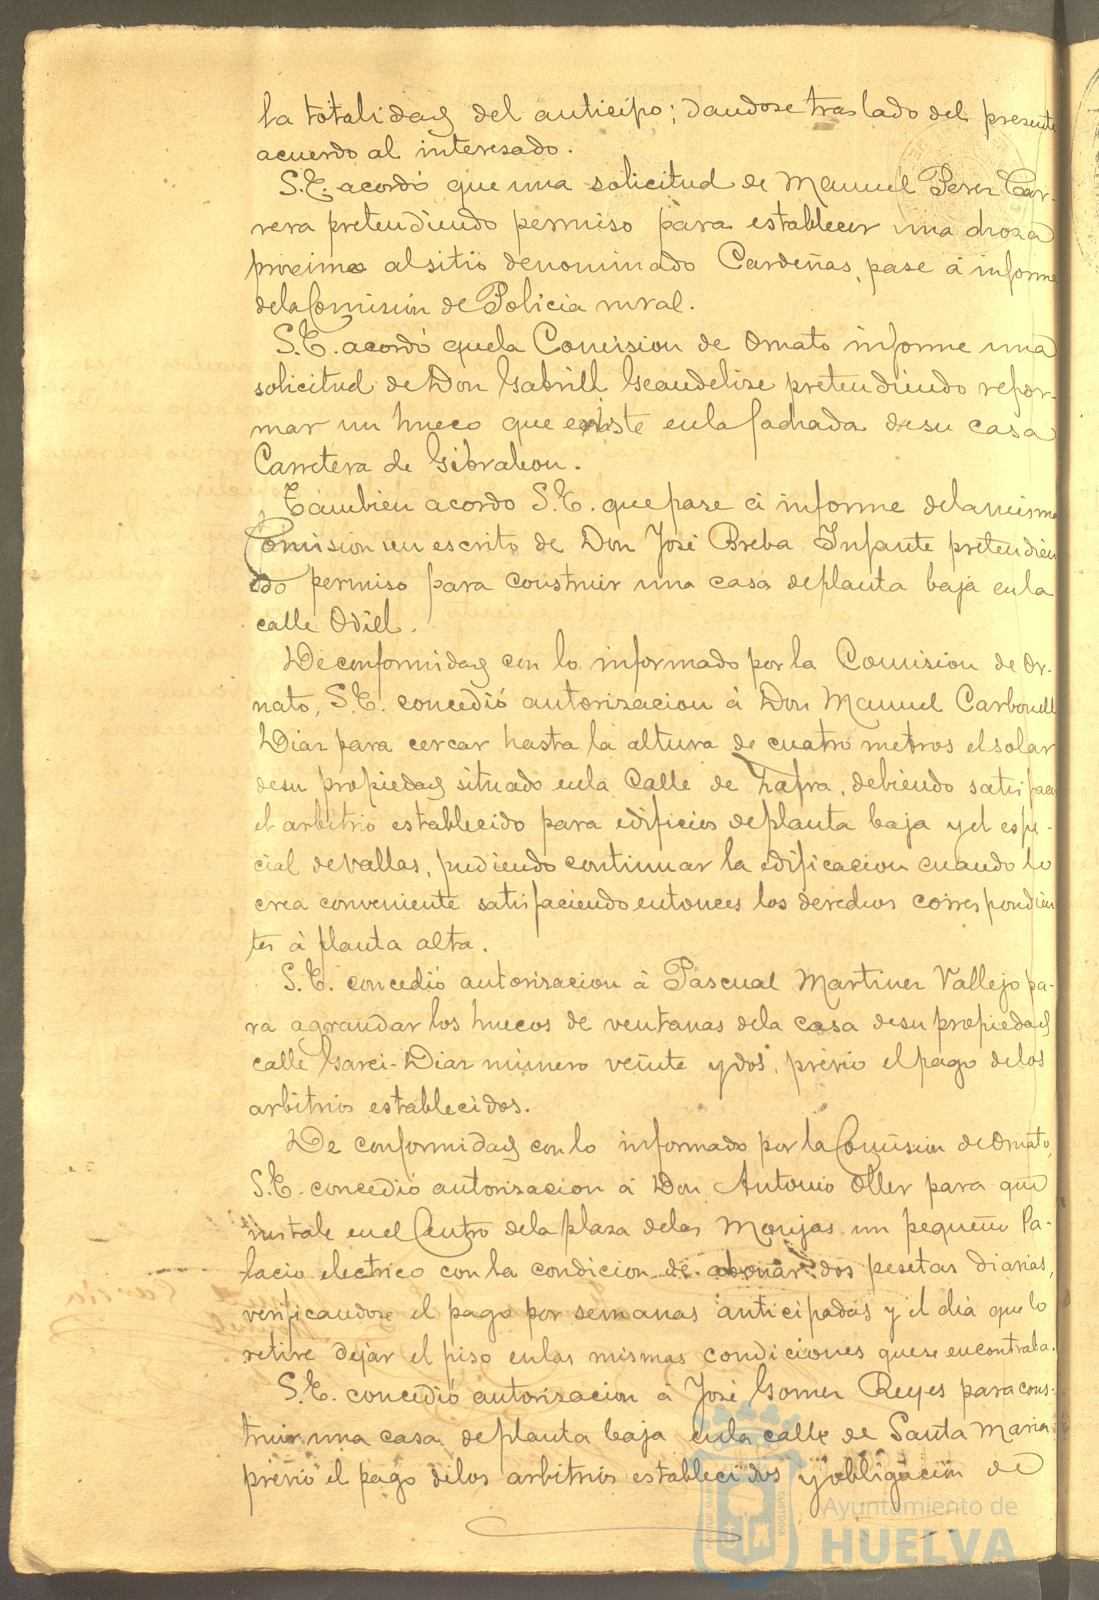 la totalidad del anticipo; dandose traslado del presente
acuerdo al interesado.
S.E. acordó que una solicitud de Manuel Perez Car-
rera pretendiendo permiso para establecer una choza
próxima al sitio denominado Cardeñas, pase á informe
de la Comisión de Policia rural.
S.E. acordó que la Comision de Ornato informe una
solicitud de Don Gabriel pretendiendo refor-
mar un hueco que existe en la fachada de su casa
Carretera de Gibraleon.
Tambien acordó S.E. que pase á informe de la misma
Comision un escrito de Don José Breba Infante pretendien
do permiso para construir una casa de planta baja en la
calle Odiel.
De conformidad con lo informado por la Comision de Or-
nato, S.E. concedió autorizacion á Don Manuel Carbonell
Diaz para cercar hasta la altura de cuatro metros el solar
de su propiedad situado en la Calle de Zafra, debiendo satisfacer
el arbitrio establecido para edificios de planta baja y el espe-
cial de vallas, pudiendo continuar la edificacion cuando lo
crea conveniente satisfaciendo entonces los derechos correspondien
tes á planta alta.
S.E. concedió autorizacion á Pascual Martinez Vallejo pa-
ra agrandar los huecos de ventanas de la casa de su propiedad
calle Garci-Diaz número veinte y dos, prévio el pago de los
arbitrios establecidos.
De conformidad con lo informado por la Comision de Ornato,
S.E. concedió autorizacion á Don Antonio Oller para que
instale en el Centro de la plaza de las Monjas un pequeño Pa-
lacio electrico con la condicion de abonar dos pesetas diarias,
verificandose el pago por semanas anticipadas y el dia que lo
retire dejar el piso en las mismas condiciones que se encontraba.
S.E. concedió autorizacion á José Gomez Reyes para cons-
truir una casa de planta baja en la calle de Santa Maria
prévio el pago de los arbitrios establecidos y obligacion de
Ayuntamiento de
HUELVA